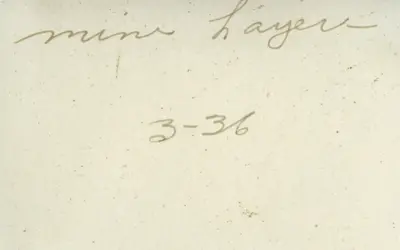 mine Layer
3-36